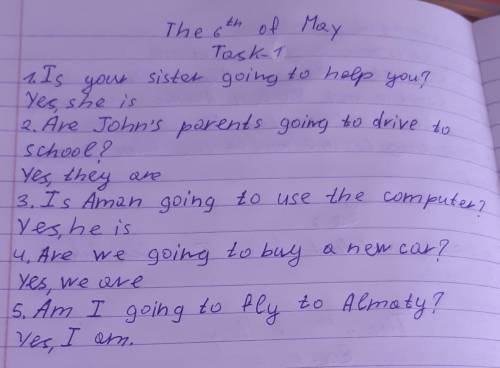 The 6th of May
Task-1
1. Is your sister going to help you?
Yes, she is
2. Are John's parents going to drive to
school?
Yes, they are
3. Is Aman going to use the computer?
Yes, he is
4. Are we going to buy a new car?
Yes, we are
5. Am I going to fly to Almaty?
Yes, I am.